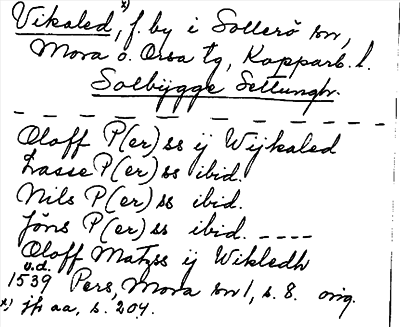 Vikaled, x) f. by i Sollerö sn,
Mora o. Orsa tg, Kopparb. l.
Solbygge Settungh.
Oloff P(er)ss ij Wijkaled
Lasse P(er)ss ibid.
Nils P(er)ss ibid.
Jöns P(er)ss ibid. ----
Oloff Matzss ij Wikledh
u.d.
1539 Pers, Mora sn 1, s. 8. orig.
x) jfr aa, s. 204.